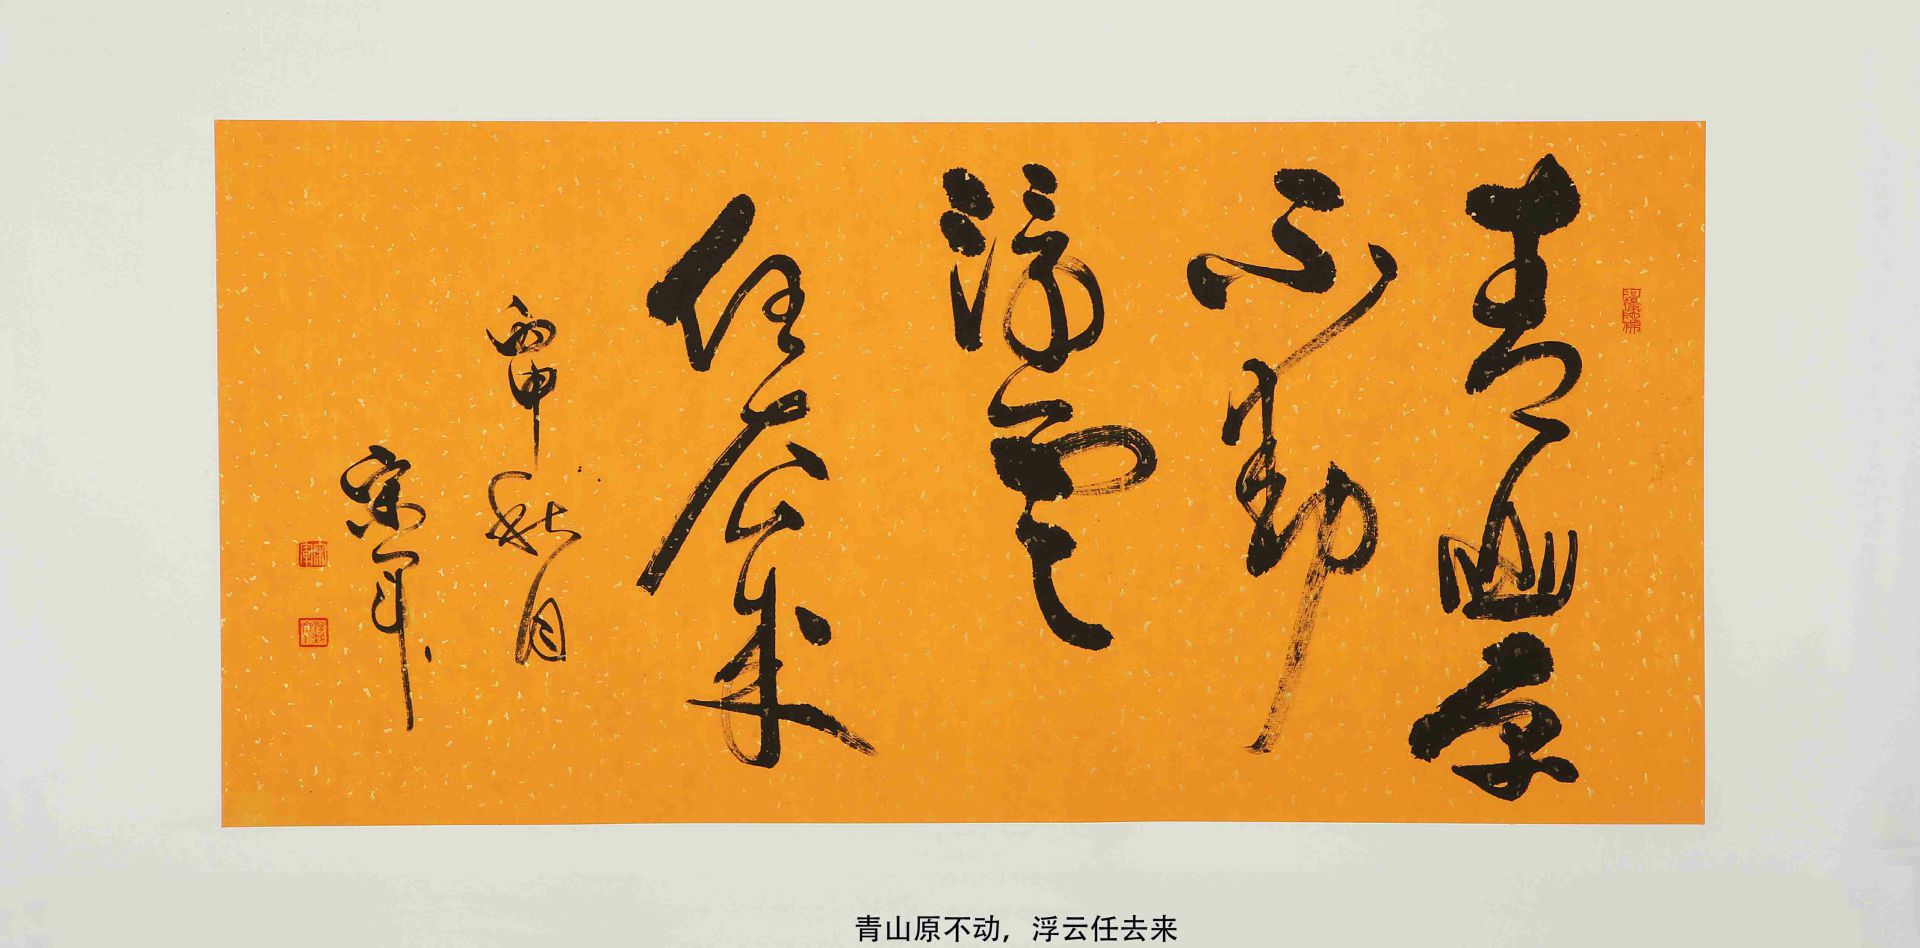 青山原
不动
浮云
任去来
丙申秋月
宗军
青山原不动，浮云任去来